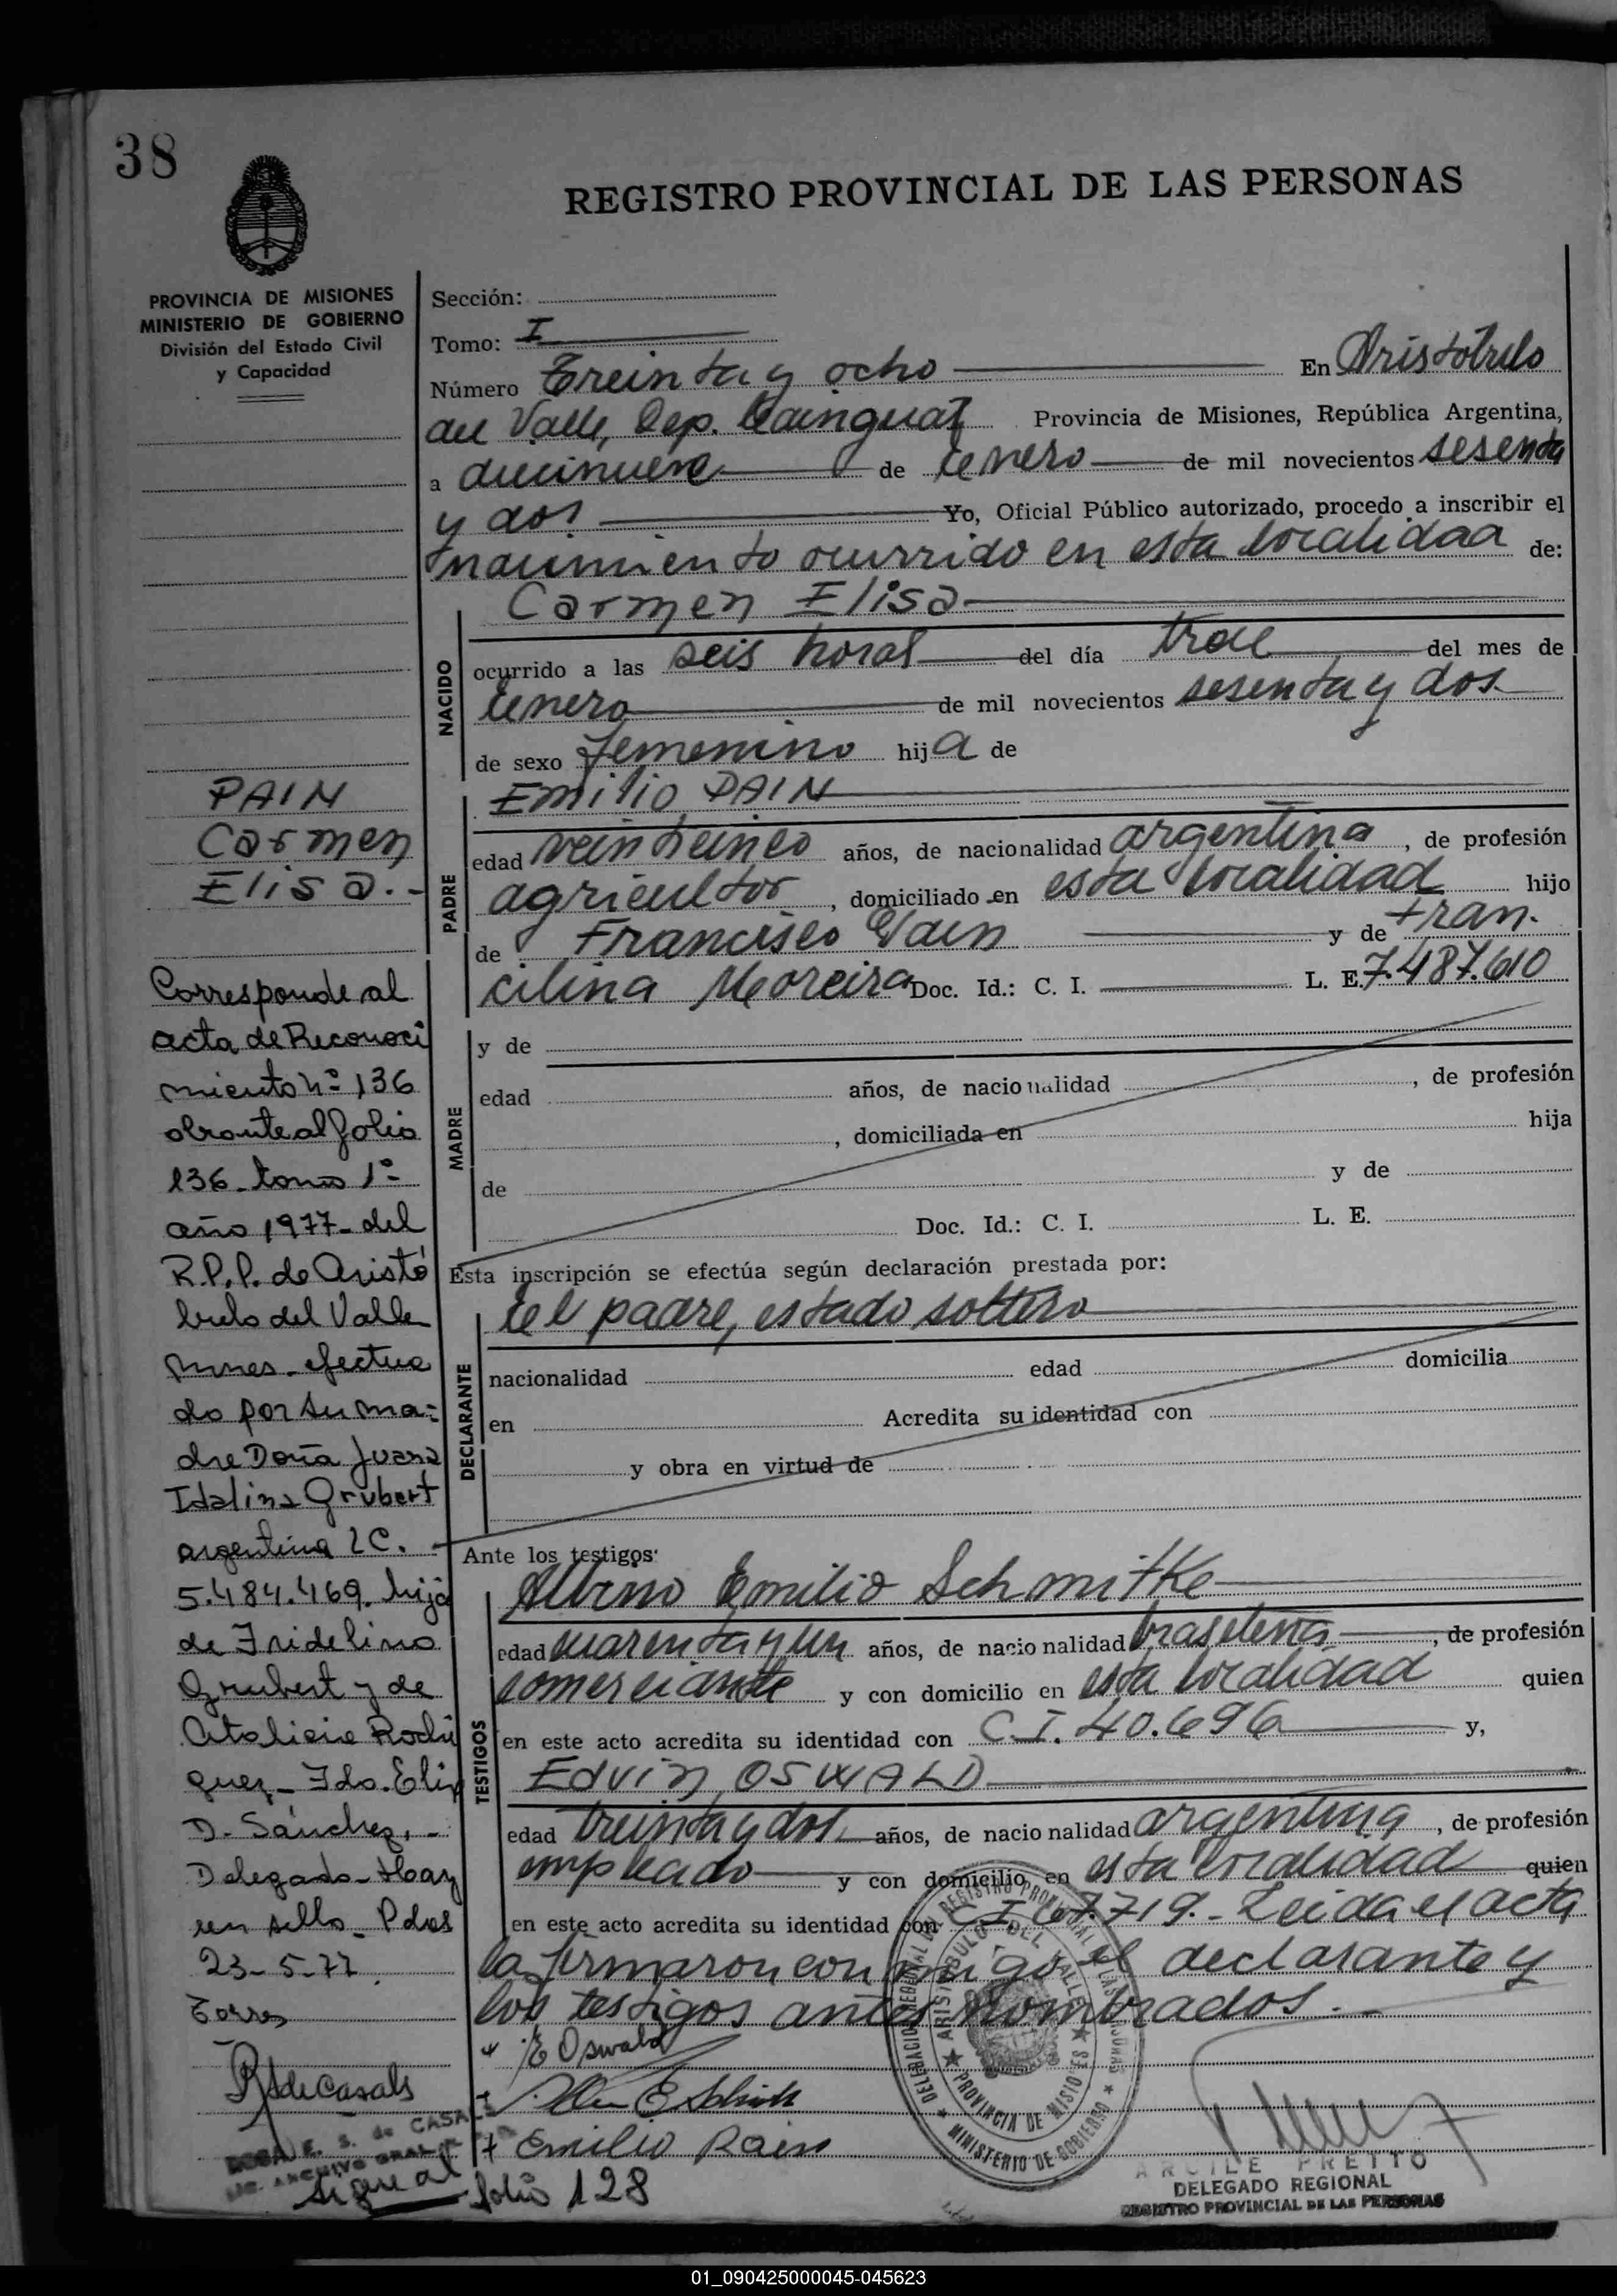 38
REGISTRO PROVINCIAL DE LAS PERSONAS
PROVINCIA DE MISIONES
MINISTERIO DE GOBIERNO
División del Estado Civil
y Capacidad
Sección:
Tomo: I
Número Treinta y ocho En Aristóbulo
del Valle, Dep. Cainguás Provincia de Misiones, República Argentina,
a diecinueve de enero de mil novecientos sesenta
y dos Yo, Oficial Público autorizado, procedo a inscribir el
nacimiento ocurrido en esta localidad de:
Carmen Elisa
NACIDO
ocurrido a las seis horas del día trece del mes de
enero de mil novecientos sesenta y dos
de sexo femenino hija de
PADRE
Emilio PAIN
edad veinticinco años, de nacionalidad argentina, de profesión
agricultor, domiciliado en esta localidad hijo
de Francisco Pain y de Fran-
cilina Moreira Doc. Id.: C. I. L. E. 7.487.610
MADRE
y de
edad años, de nacionalidad , de profesión
, domiciliada en hija
de y de
Doc. Id.: C. I. L. E.
Esta inscripción se efectúa según declaración prestada por:
DECLARANTE
el padre, estado soltero
nacionalidad edad domicilia
en Acredita su identidad con
y obra en virtud de
Ante los testigos:
TESTIGOS
Albino Emilio Schmitke
edad cuarenta y un años, de nacionalidad brasileña, de profesión
comerciante y con domicilio en esta localidad quien
en este acto acredita su identidad con C.I. 40.696 y,
Edvin OSWALD
edad treinta y dos años, de nacionalidad argentina, de profesión
empleado y con domicilio en esta localidad quien
en este acto acredita su identidad con C.I. 67.719.- Leida el acta
la firmaron conmigo el declarante y
los testigos antes nombrados.-
E Oswald
Emilio Pain
PAIN
Carmen
Elisa.-
Corresponde al
acta de Reconoci
miento nº 136
obrante al folio
136 tomo 1º
año 1977- del
R.P.P. de Aristó
bulo del Valle
Mnes. efectua
do por su ma-
dre Doña Juana
Idalina Grubert
argentina LC.
5.484.469. hija
de Fridelino
Grubert y de
Rodri
guez- Fdo. Elia
D. Sánchez,-
Delegado- Hay
un sello- Pdas
23-5-77
Torres
RSdeCasals
ROSA E. S. de CASALS
sigue al folio 128
DELEGACION REGISTRO PROVINCIAL DE LAS PERSONAS
ARISTOBULO DEL VALLE
PROVINCIA DE MISIONES
MINISTERIO DE GOBIERNO
PRETTO
DELEGADO REGIONAL
REGISTRO PROVINCIAL DE LAS PERSONAS
01_090425000045-045623